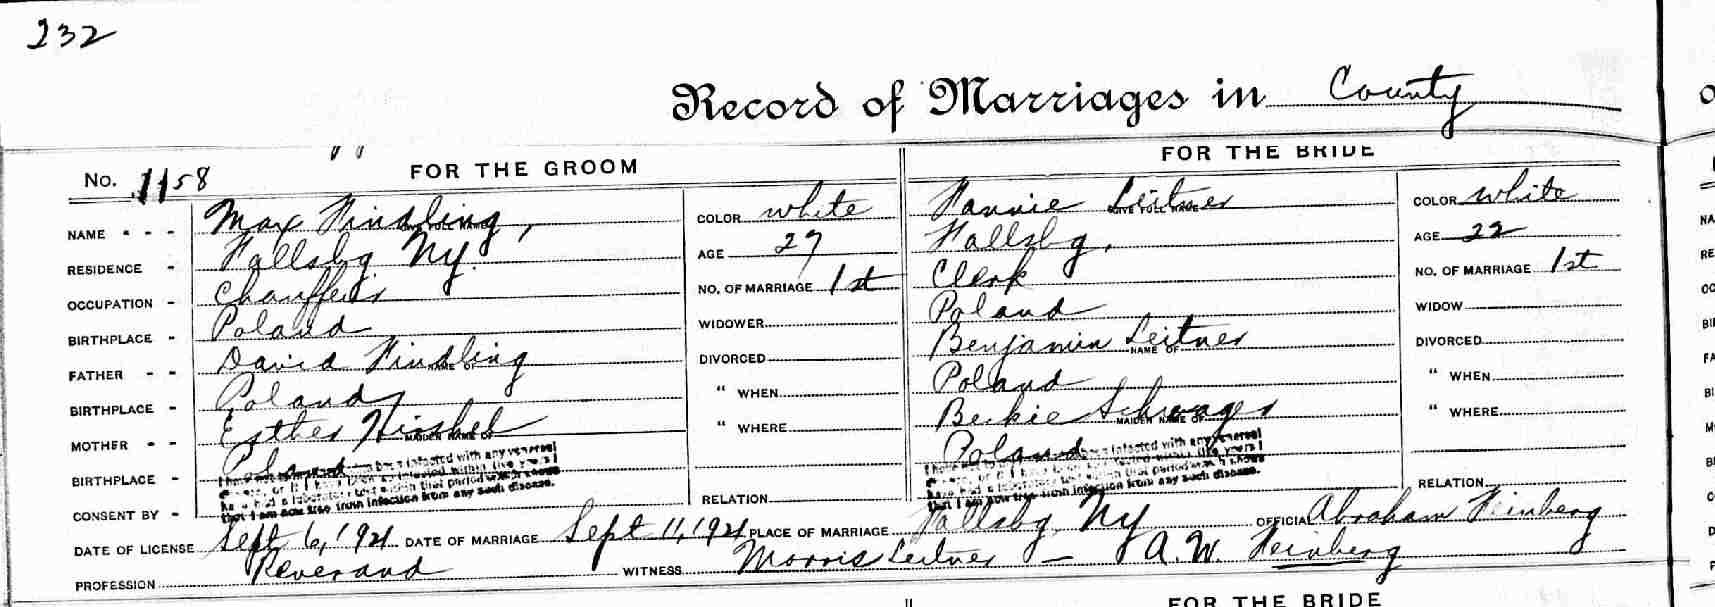 232
Record of Marriages in County
No. 1158 " " FOR THE GROOM
FOR THE BRIDE
NAME " - - Max Findling, GIVE FULL NAME COLOR white
Fannie Leitner GIVE FULL NAME COLOR white
RESIDENCE - Fallsbg NY. AGE 27
Fallsbg, AGE 22
OCCUPATION - Chauffeur NO. OF MARRIAGE 1st
Clerk NO. OF MARRIAGE 1st
BIRTHPLACE - Poland WIDOWER
Poland WIDOW
FATHER - - David Findling NAME OF DIVORCED
Benjamin Leitner NAME OF DIVORCED
BIRTHPLACE - Poland " WHEN
Poland " WHEN
MOTHER - - Esther Hirshel MAIDEN NAME OF " WHERE
Beckie Schwager MAIDEN NAME OF " WHERE
BIRTHPLACE - Poland
Poland
I have not been infected with any venereal
disease, or if I have been so infected within five years I
have had a laboratory test within that period which shows
that I am now free from infection from any such disease.
I have not been infected with any venereal
disease, or if I have been so infected within five years I
have had a laboratory test within that period which shows
that I am now free from infection from any such disease.
CONSENT BY - RELATION
RELATION
DATE OF LICENSE Sept 6, 1921 DATE OF MARRIAGE Sept 11, 1921 PLACE OF MARRIAGE Fallsbg, NY OFFICIAL Abraham Feinberg
PROFESSION Reverand WITNESS Morris Leitner — A. W. Feinberg
FOR THE BRIDE